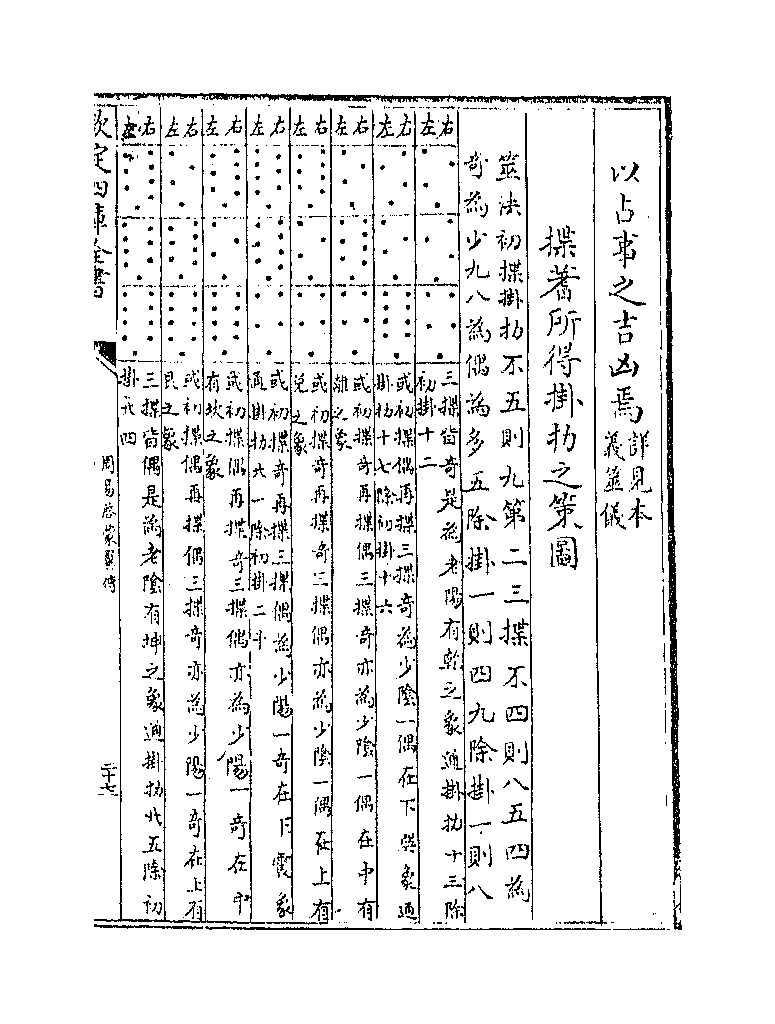 以占事之吉凶焉詳見本
義筮儀
揲蓍所得掛扐之策圖
筮法初揲掛扐不五則九第二三揲不四則八五四為
奇為少九八為偶為多五除掛一則四九除掛一則八
右
左
三揲皆奇是為老陽有乾之象通掛扐十三除
初掛十二
右
左
或初揲偶再揲三揲奇為少陰一偶在下巽象通
掛扐十七除初掛十六
右
左
或初揲奇再揲偶三揲奇亦為少陰一偶在中有
離之象
右
左
或初揲奇再揲奇三揲偶亦為少陰一偶在上有
兌之象
右
左
或初揲奇再揲三揲偶為少陽一奇在下震象
通掛扐六一除初掛二十
右
左
或初揲偶再揲奇三揲偶亦為少陽一奇在中
有坎之象
右
左
或初揲偶再揲偶三揲奇亦為少陽一奇在上有
艮之象
右
左
三揲皆偶是為老陰有坤之象通掛扐北五除初
掛六四
欽定四庫全書
周易啓蒙翼傳
二十七